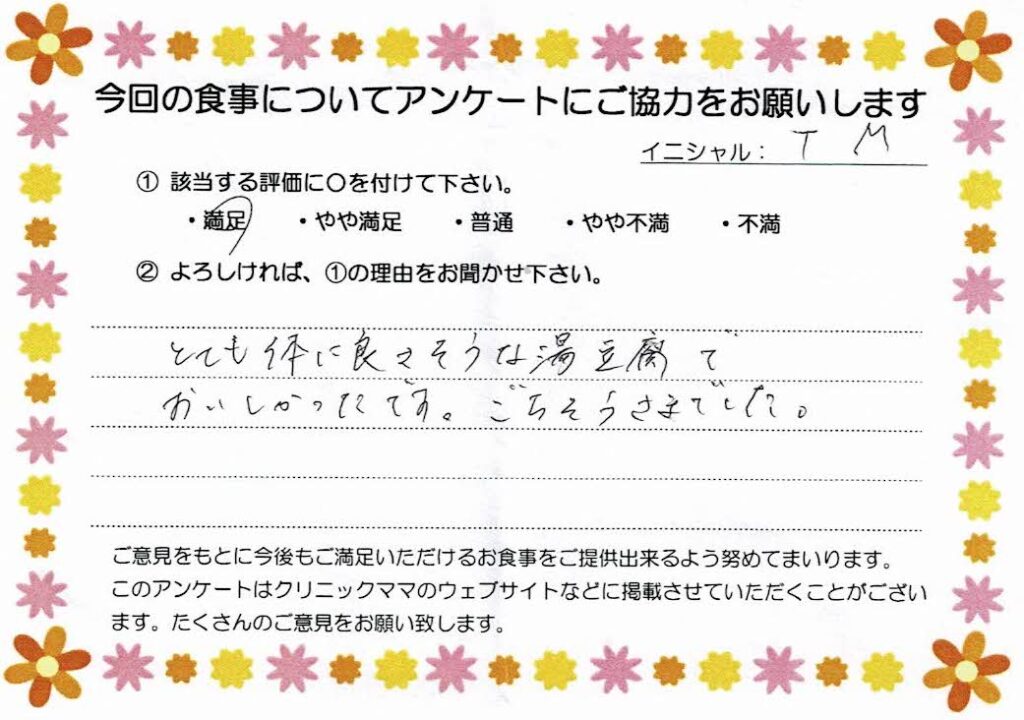 今回の食事についてアンケートにご協力をお願いします
イニシャル： T M
① 該当する評価に〇を付けて下さい。
・満足 ・やや満足 ・普通 ・やや不満 ・不満
② よろしければ、①の理由をお聞かせ下さい。
とても体に良さそうな湯豆腐で
おいしかったです。ごちそうさまでした。
ご意見をもとに今後もご満足いただけるお食事をご提供出来るよう努めてまいります。
このアンケートはクリニックママのウェブサイトなどに掲載させていただくことがござい
ます。たくさんのご意見をお願い致します。